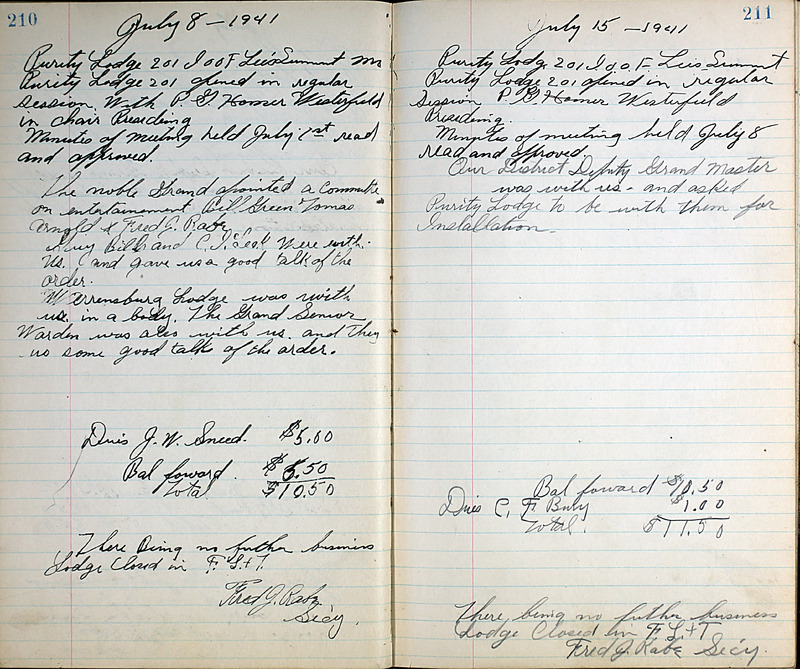 210
July 8 - 1941
Purity Lodge 201 I O O F Lee's Summit Mo
Purity Lodge 201 opened in regular
Session. With P. G Homer Westerfield
in chair Presiding
Minutes of meeting held July 1st read
and approved.
The noble Grand apointed a Committe
on entertainment Bill Green Tomas
Arnold & Fred J. Rabe
Bills and C. were with
us. and gave us a good talk of the
order.
Warrensburg Lodge was with
us. in a body. The Grand Senior
Warden was also with us. and They
us some good talks of the order.
Dues J. W. Sneed. $5.00
Bal foward. $5.50
Total $10.50
There Being no futher business
Lodge Closed in F. L + T.
Fred J. Rabe
Sec'y.
211
July 15 - 1941
Purity Lodge 201 I. O. O. F Lee's Summit
Purity Lodge 201 opened in regular
Session P. G. Homer Westerfield
Presiding.
Minutes of meeting held July 8
read and approved.
Our District Deputy Grand Master
was with us - and asked
Purity Lodge to be with them for
Installation.
Bal foward $10.50
Dues C. F. $1.00
Total. $11.50
There being no futher business
Lodge Closed in F L. + T
Fred J. Rabe Sec'y.